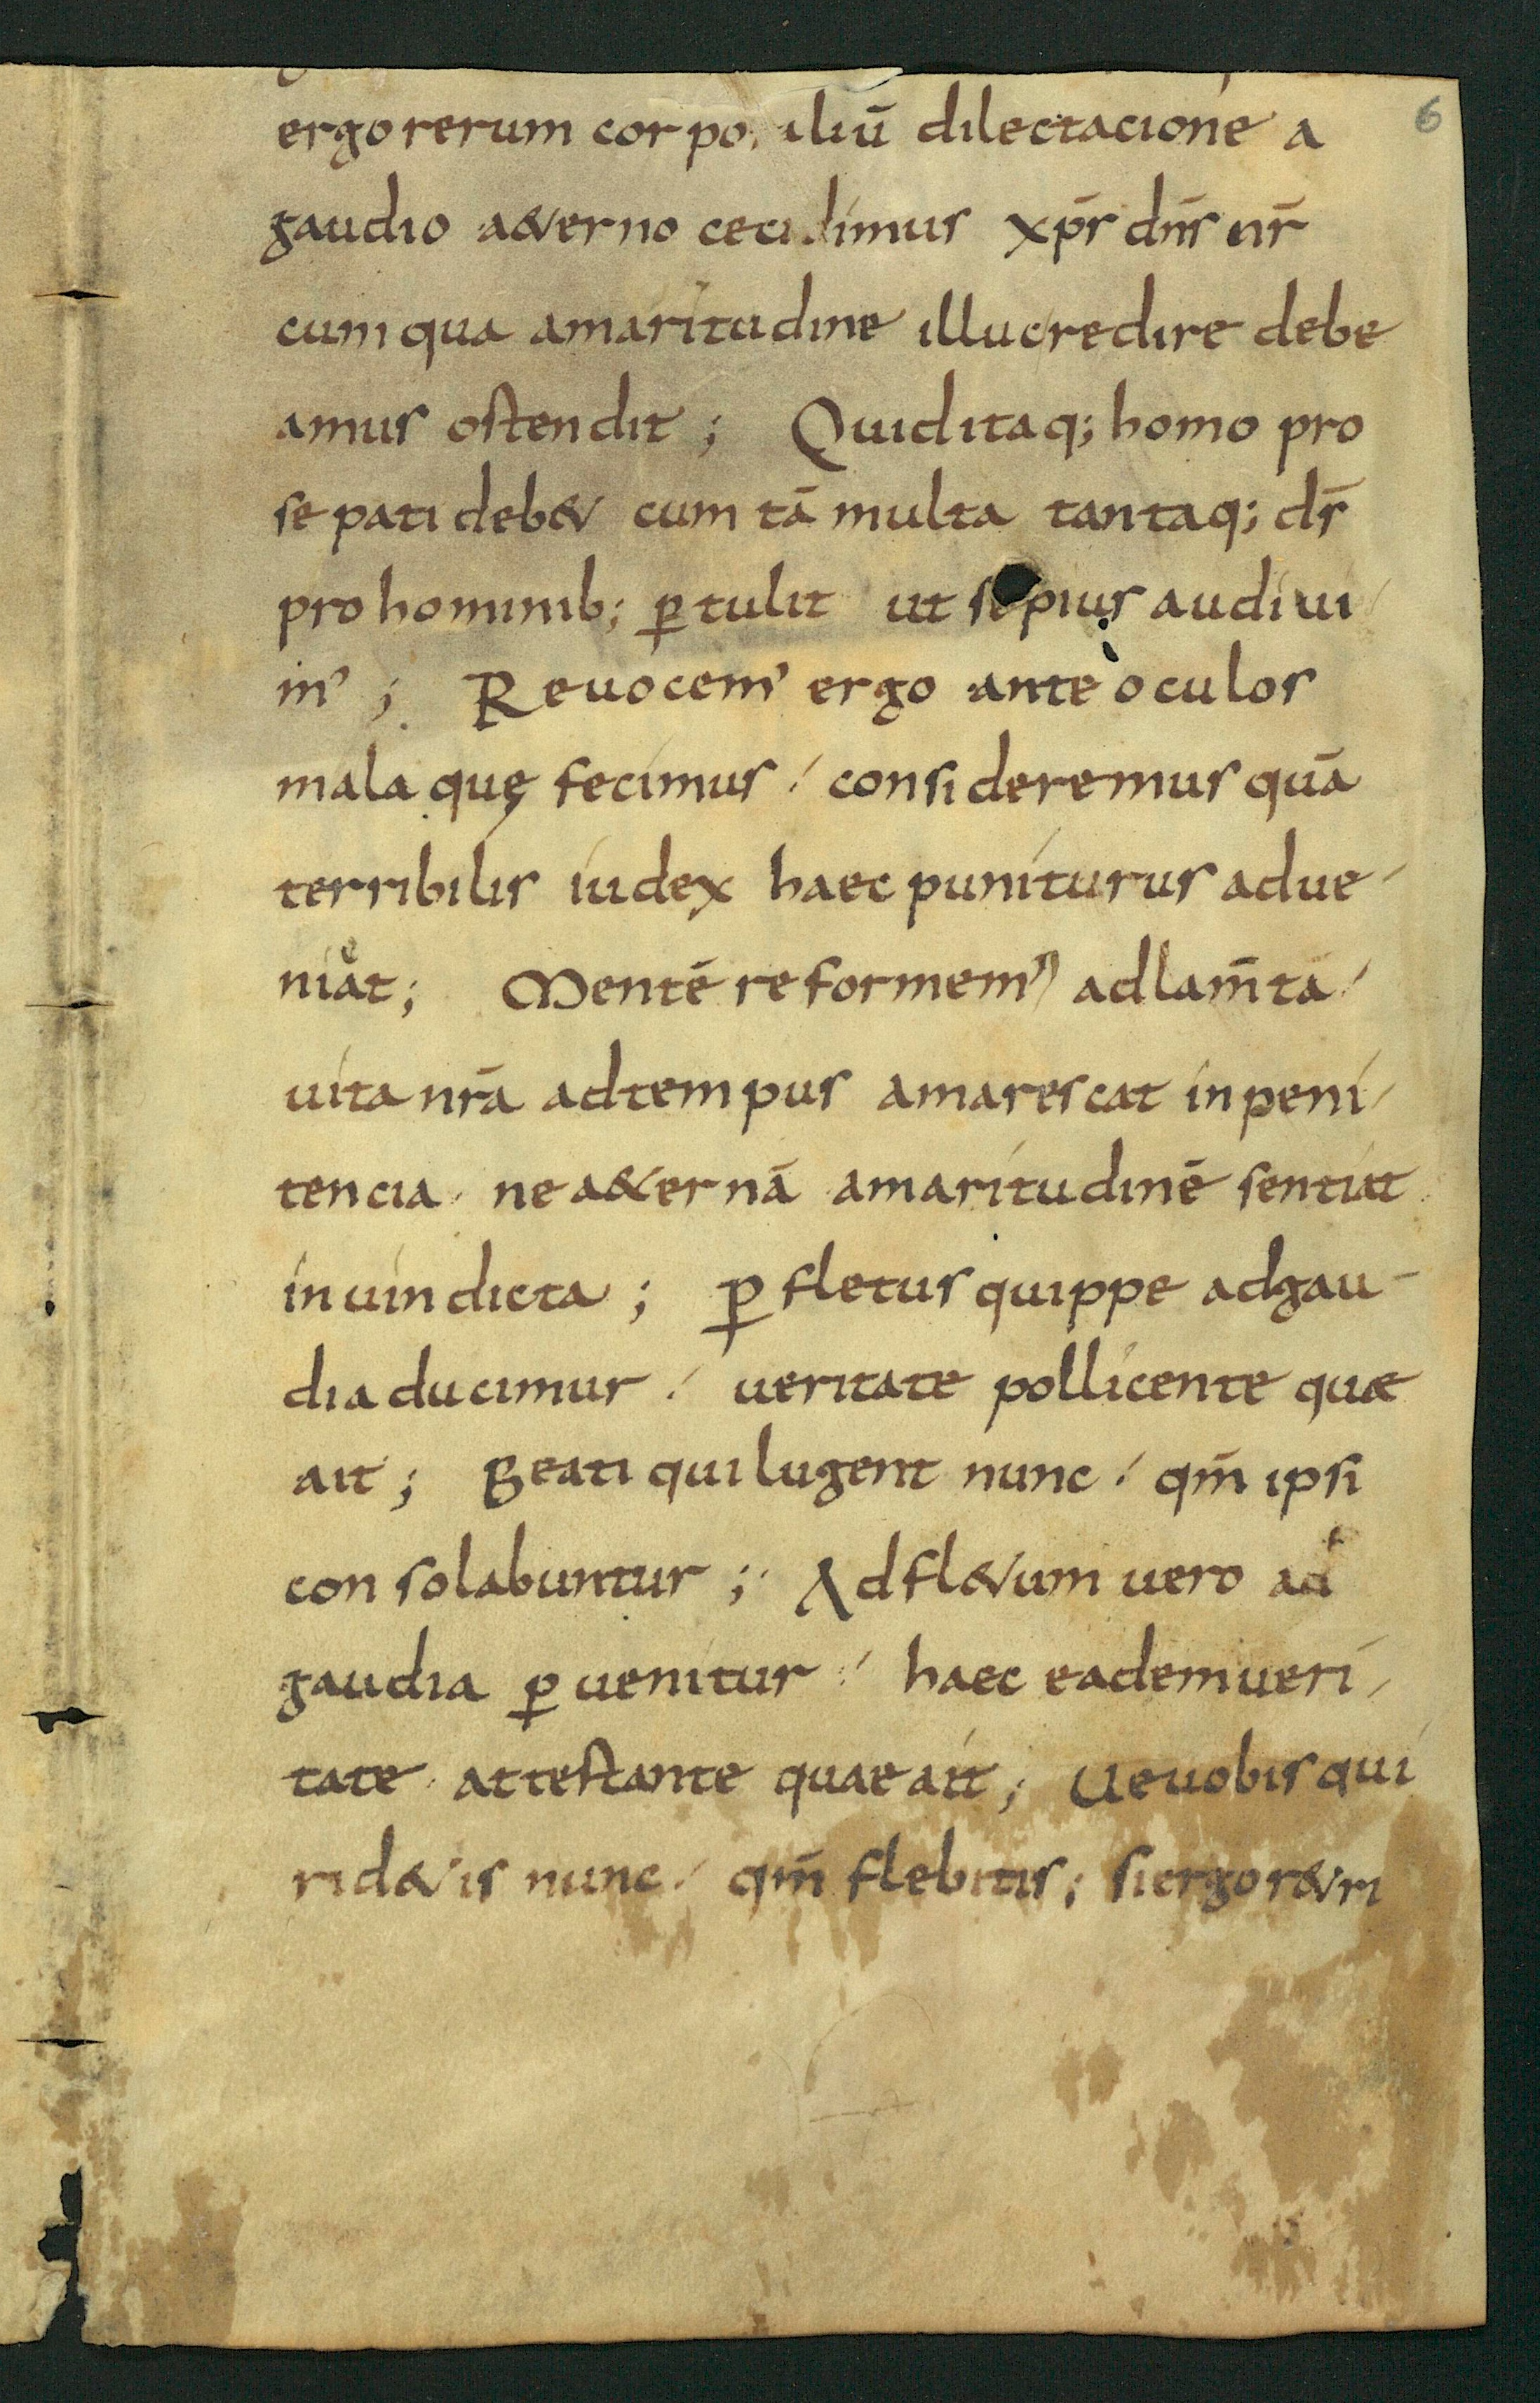 6
ergo rerum corpo iliū dilectacione a
gaudio a&erno cecidimus xp̄s dn̄s nr̄
cum qua amaritudine illuc redire debe
amus ostendit ; Quid itaq; homo pro
se pati deb& cum tā multa tantaq; ds̄
pro hominib; ꝑtulit ut sepius audiui
m' ; Reuocem' ergo ante oculos
mala quę fecimus / consideremus quā
terribilis iudex haec puniturus adue-
niat; Mentē reformem' ad lam̄ta /
uita nr̄a ad tempus amarescat in peni /
tencia . ne a&ernā amaritudinē sentiat
in uindicta ; ꝑ fletus quippe ad gau-
dia ducimur / ueritate pollicente quae
ait ; Beati qui lugent nunc / qm̄ ipsi
consolabuntur ; Ad fl&um uero ad
gaudia ꝑuenitur / haec eadem ueri /
tate . attestante quae ait ; Ue uobis qui
rid&is nunc / qm̄ flebitis ; si ergo r&ri